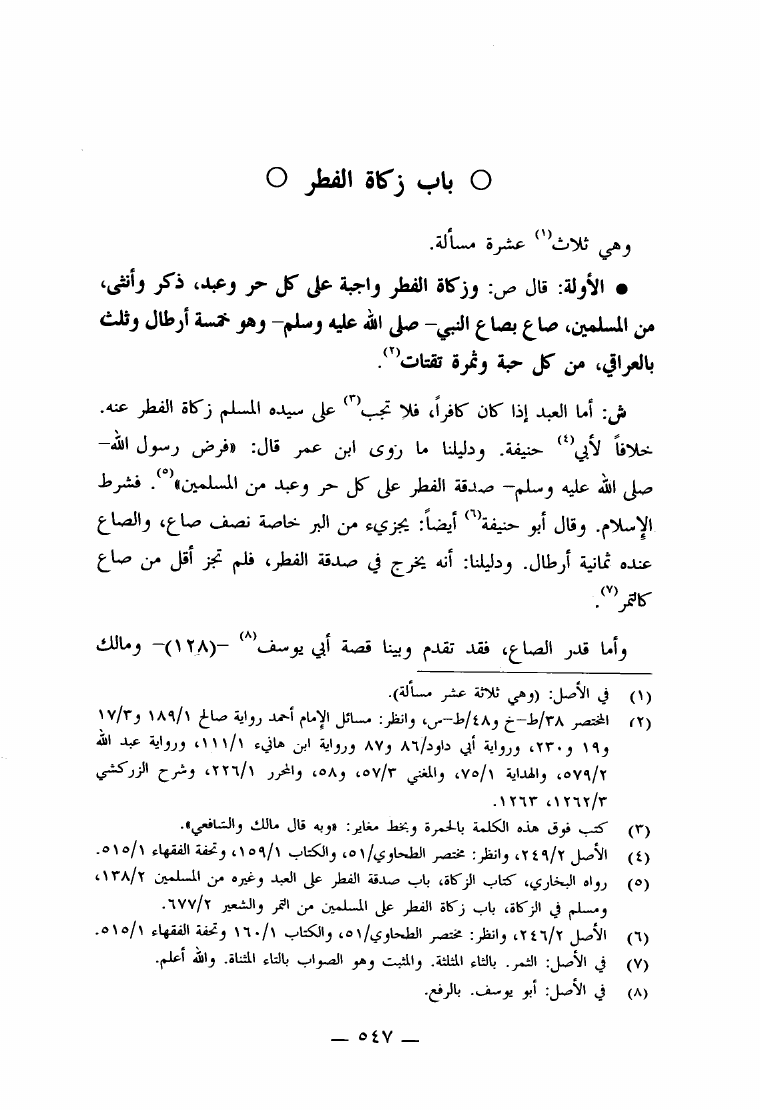 ○ باب زكاة الفطر ○
وهي ثلاث(١) عشرة مسألة.
● الأولة: قال ص: وزكاة الفطر واجبة على كل حر وعبد، ذكر وأنثى،
من المسلمين، صاع بصاع النبي– صلى الله عليه وسلم– وهو خمسة أرطال وثلث
بالعراقي، من كل حبة وثمرة تقتات(٢).
ش: أما العبد إذا كان كافراً، فلا تجب(٣) على سيده المسلم زكاة الفطر عنه.
خلافاً لأبي(٤) حنيفة. ودليلنا ما روى ابن عمر قال: «فرض رسول الله–
صلى الله عليه وسلم– صدقة الفطر على كل حر وعبد من المسلمين»(٥). فشرط
الإسلام. وقال أبو حنيفة(٦) أيضاً: يجزيء من البر خاصة نصف صاع، والصاع
عنده ثمانية أرطال. ودليلنا: أنه يخرج في صدقة الفطر، فلم تجز أقل من صاع
كالتمر(٧).
وأما قدر الصاع، فقد تقدم وبينا قصة أبي يوسف(٨) –(١٢٨)– ومالك
(١) في الأصل: (وهي ثلاثة عشر مسألة).
(٢) المختصر ٣٨/ط–خ و٤٨/ط–س، وانظر: مسائل الإمام أحمد رواية صالح ١٨٩/١ و١٧/٣
و١٩ و٢٣٠، ورواية أبي داود/٨٦ و٨٧ ورواية ابن هانيء ١١١/١، ورواية عبد الله
٥٧٩/٢، والهداية ٧٥/١، والمغني ٥٧/٣، و٥٨، والمحرر ٢٢٦/١، وشرح الزركشي
١٢٦٢/٣، ١٢٦٣.
(٣) كتب فوق هذه الكلمة بالحمرة وبخط مغاير: «وبه قال مالك والشافعي».
(٤) الأصل ٢٤٩/٢، وانظر: مختصر الطحاوي/٥١، والكتاب ١٥٩/١، وتحفة الفقهاء ٥١٥/١.
(٥) رواه البخاري، كتاب الزكاة، باب صدقة الفطر على العبد وغيره من المسلمين ١٣٨/٢،
ومسلم في الزكاة، باب زكاة الفطر على المسلمين من التمر والشعير ٦٧٧/٢.
(٦) الأصل ٢٤٦/٢، وانظر: مختصر الطحاوي/٥١، والكتاب ١٦٠/١ وتحفة الفقهاء ٥١٥/١.
(٧) في الأصل: الثمر. بالثاء المثلثة. والمثبت وهو الصواب بالتاء المثناة. والله أعلم.
(٨) في الأصل: أبو يوسف. بالرفع.
— ٥٤٧ —